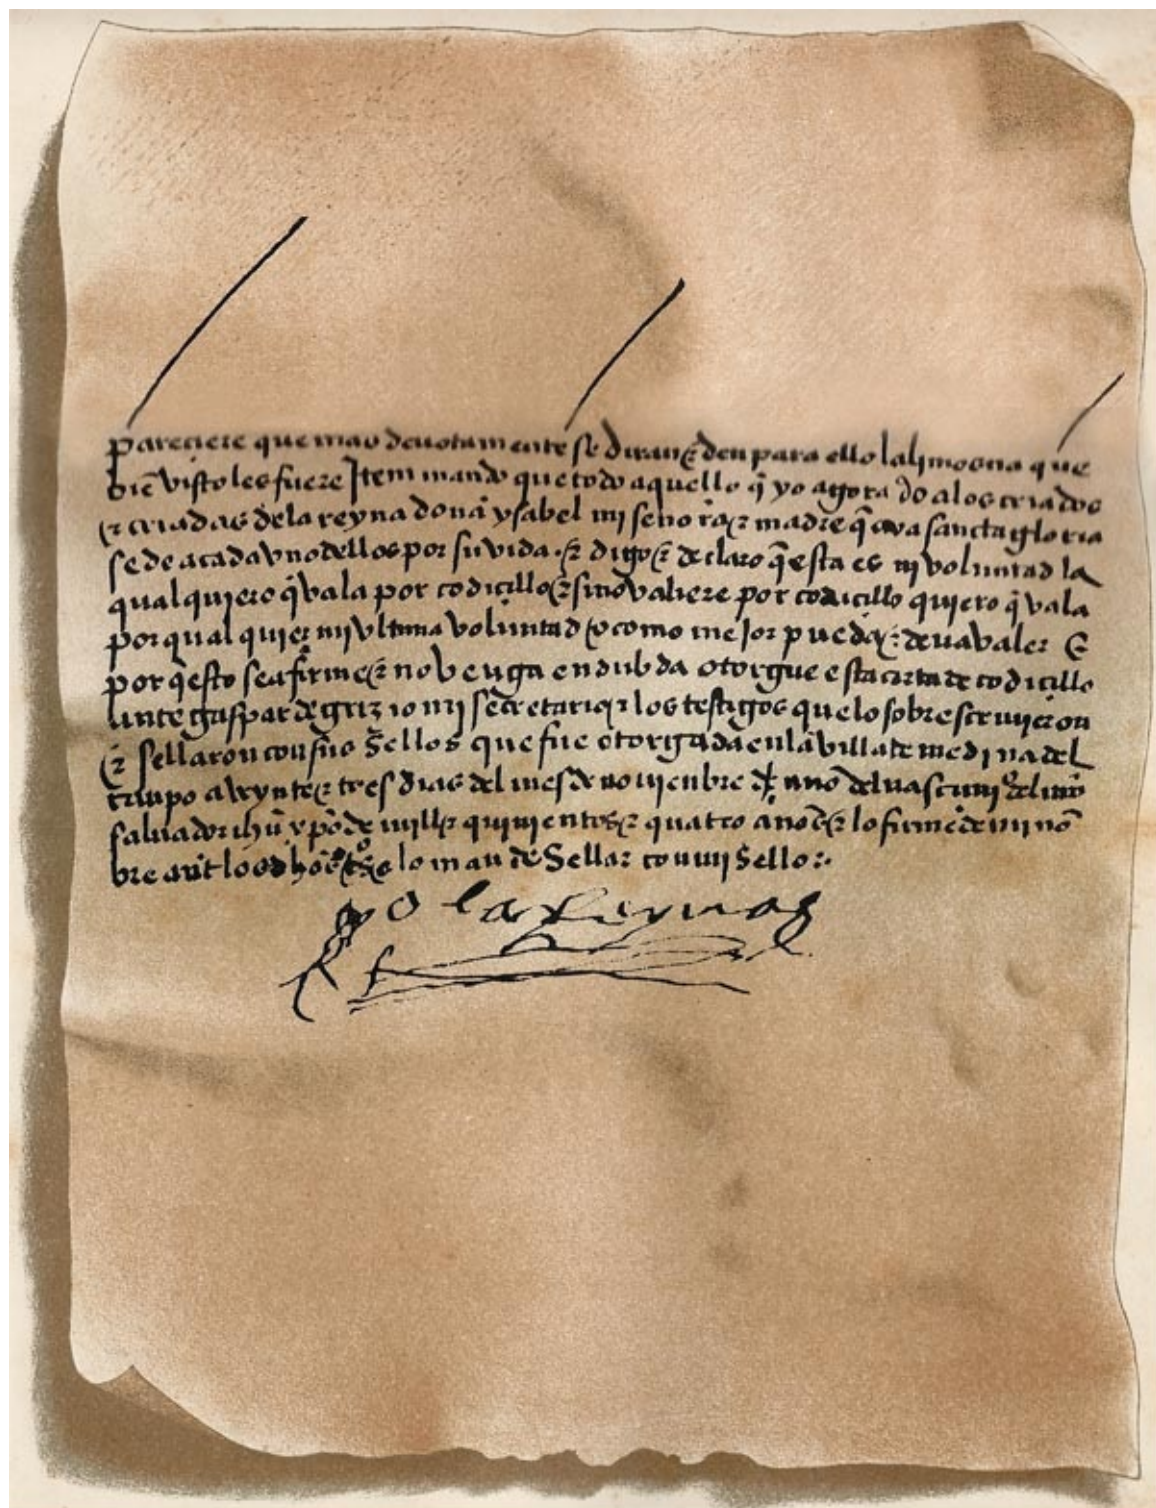 pareciere que mas devotamente se diran ⁊ den para ello la lymosna que
biē visto les fuere Item mando que todo aquello q̄ yo agora do a los criados
⁊ criadas de la reyna doña ysabel mi señora ⁊ madre q̄ aya sancta gloria
se de a cada vno dellos por su vida. ⁊ digo ⁊ declaro q̄ esta es mi voluntad la
qual quiero q̄ vala por codicillo ⁊ si no valiere por codicillo quiero q̄ vala
por qual quier mi vltima voluntad o como mejor pueda ⁊ deua valer E
por q̄ esto sea firme ⁊ no venga en dubda otorgue esta carta de codicillo
ante gaspar de grizio mi secretario ⁊ los testigos que lo sobrescriuieron
⁊ sellaron con sus sellos que fue otorgada en la villa de medina del
campo a veynte ⁊ tres dias del mes de nouienbre año del nascimiº del nr̄o
saluador ihū xpō de mill ⁊ quinientos ⁊ quatro años ⁊ lo firme de mi nō
bre ant los dhōs tºs ⁊ lo man de sellar con mi sello:.
yo la Reyna